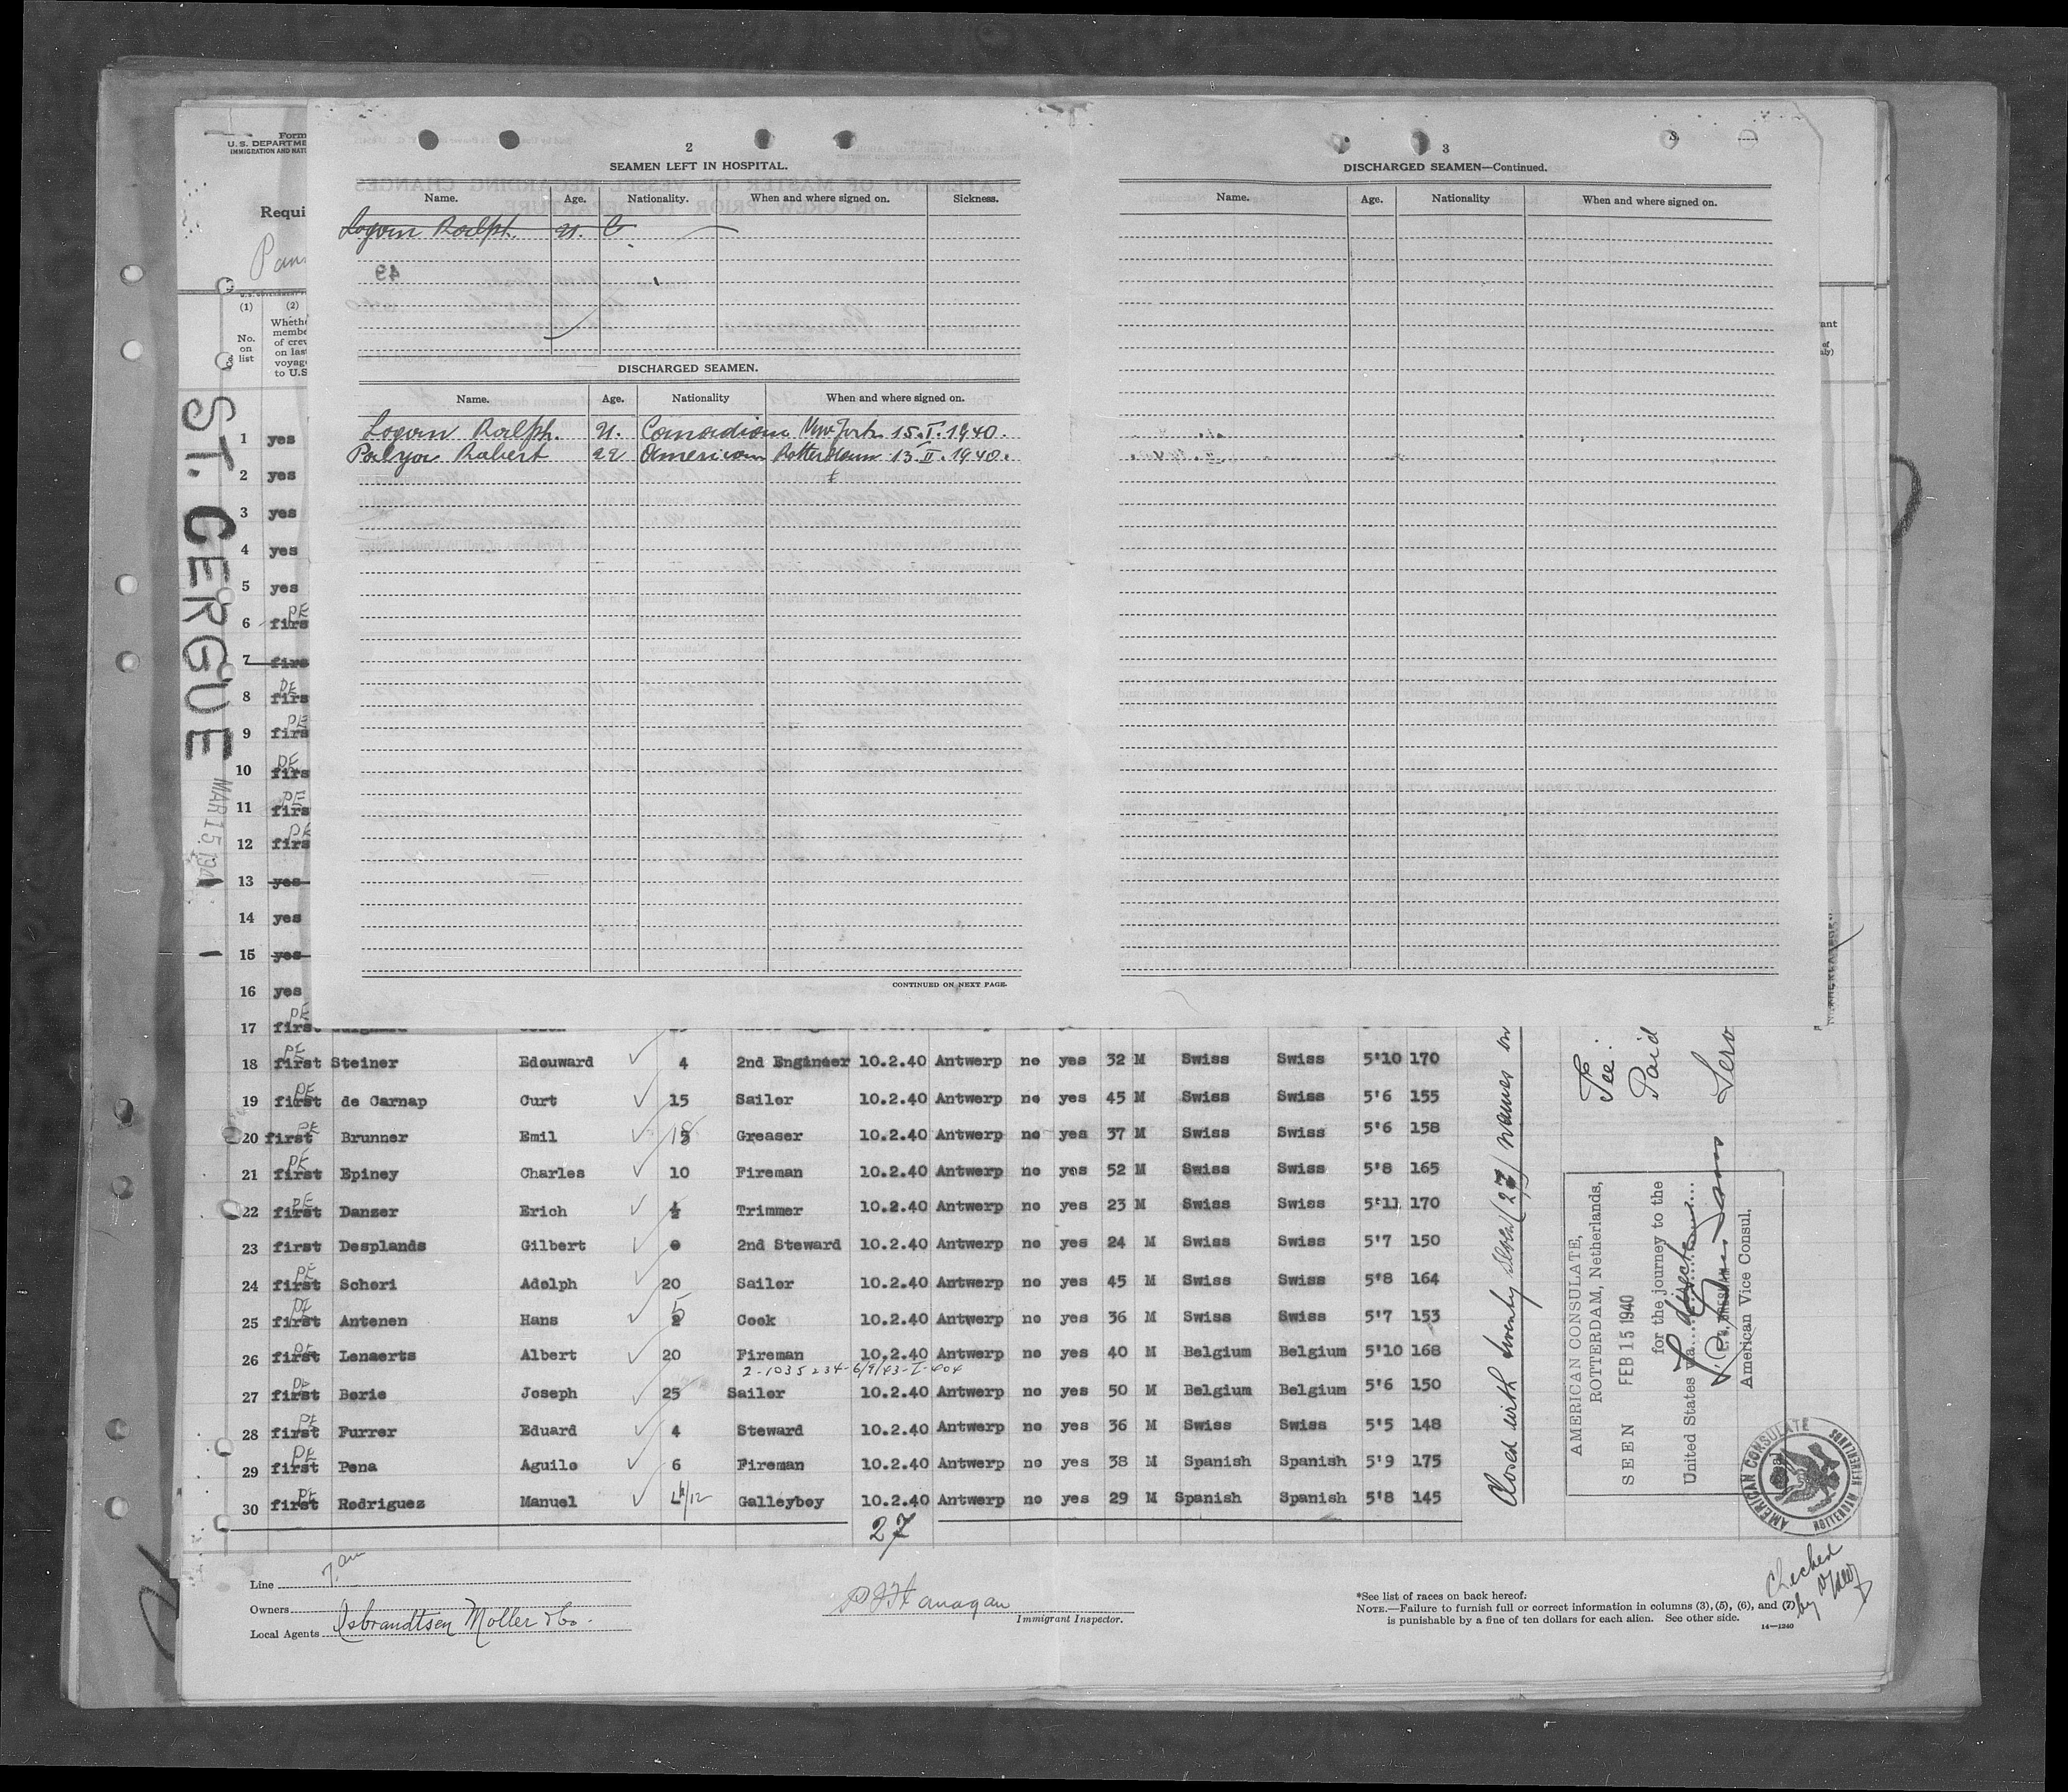 Form
U.S. DEPARTME
IMMIGRATION AND NAT
Requi
(1) (2)
No. on list
Wheth
membe
of crew
on last
voyage
to U.S
ST. CERGUE
MAR 15 194
2
SEAMEN LEFT IN HOSPITAL.
Name. Age. Nationality. When and where signed on. Sickness.
Logan Ralph. 21. C.
49
DISCHARGED SEAMEN.
Name. Age. Nationality When and where signed on.
Logan Ralph. 21. Canadian New York 15.I.1940.
Robert 22 American Rotterdam 13.II.1940.
CONTINUED ON NEXT PAGE.
3
DISCHARGED SEAMEN—Continued.
Name. Age. Nationality When and where signed on.
1 yes
2 yes
3 yes
4 yes
5 yes
6 PE firs
7 firs
8 PE firs
9 PE firs
10 PE firs
11 PE firs
12 PE firs
13 yes
14 yes
15 yes
16 yes
17 PE first
18 PE first Steiner Edouward 4 2nd Engineer 10.2.40 Antwerp no yes 32 M Swiss Swiss 5'10 170
19 PE first de Carnap Curt 15 Sailor 10.2.40 Antwerp no yes 45 M Swiss Swiss 5'6 155
20 PE first Brunner Emil 18 Greaser 10.2.40 Antwerp no yes 37 M Swiss Swiss 5'6 158
21 PE first Epiney Charles 10 Fireman 10.2.40 Antwerp no yes 52 M Swiss Swiss 5'8 165
22 PE first Danzer Erich ½ Trimmer 10.2.40 Antwerp no yes 23 M Swiss Swiss 5'11 170
23 first Desplands Gilbert 0 2nd Steward 10.2.40 Antwerp no yes 24 M Swiss Swiss 5'7 150
24 PE first Scheri Adolph 20 Sailor 10.2.40 Antwerp no yes 45 M Swiss Swiss 5'8 164
25 PE first Antenen Hans 5 2 Cook 10.2.40 Antwerp no yes 36 M Swiss Swiss 5'7 153
26 PE first Lenaerts Albert 20 Fireman 10.2.40 Antwerp no yes 40 M Belgium Belgium 5'10 168
2-1035234-6/9/43-I-404
27 PE first Borie Joseph 25 Sailor 10.2.40 Antwerp no yes 50 M Belgium Belgium 5'6 150
28 PE first Furrer Eduard 4 Steward 10.2.40 Antwerp no yes 36 M Swiss Swiss 5'5 148
29 PE first Pena Aguilo 6 Fireman 10.2.40 Antwerp no yes 38 M Spanish Spanish 5'9 175
30 PE first Rodriguez Manuel 4/12 Galleyboy 10.2.40 Antwerp no yes 29 M Spanish Spanish 5'8 145
27
Closed with twenty seven (27) names on
Fee:
Paid
AMERICAN CONSULATE,
ROTTERDAM, Netherlands,
SEEN FEB 15 1940
for the journey to the
United States via
American Vice Consul.
AMERICAN CONSULATE
ROTTERDAM NETHERLANDS
Line
Owners
Local Agents Isbrandtsen Moller & Co.
Immigrant Inspector.
*See list of races on back hereof:
NOTE.—Failure to furnish full or correct information in columns (3), (5), (6), and (7)
is punishable by a fine of ten dollars for each alien. See other side.
14—1240
Checked
by